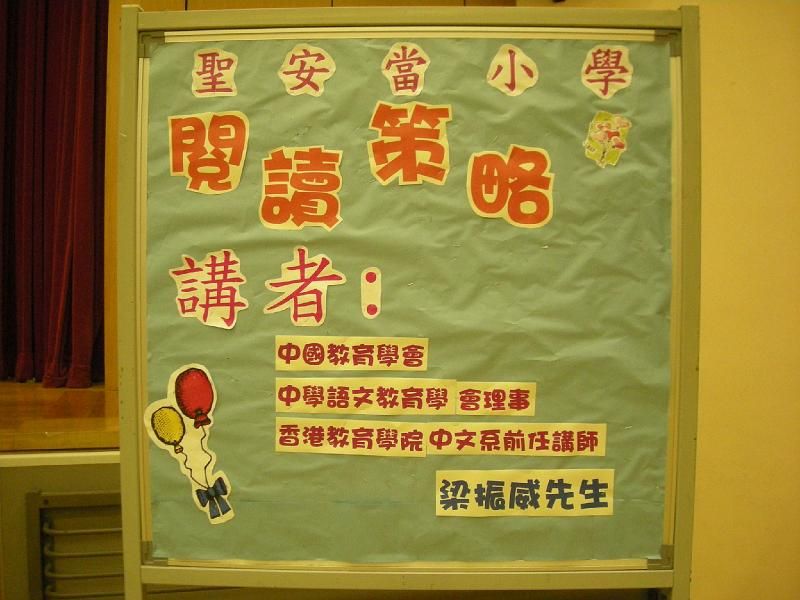 聖安當小學
閱讀策略
講者：
中國教育學會
中學語文教育學會理事
香港教育學院中文系前任講師
梁振威先生